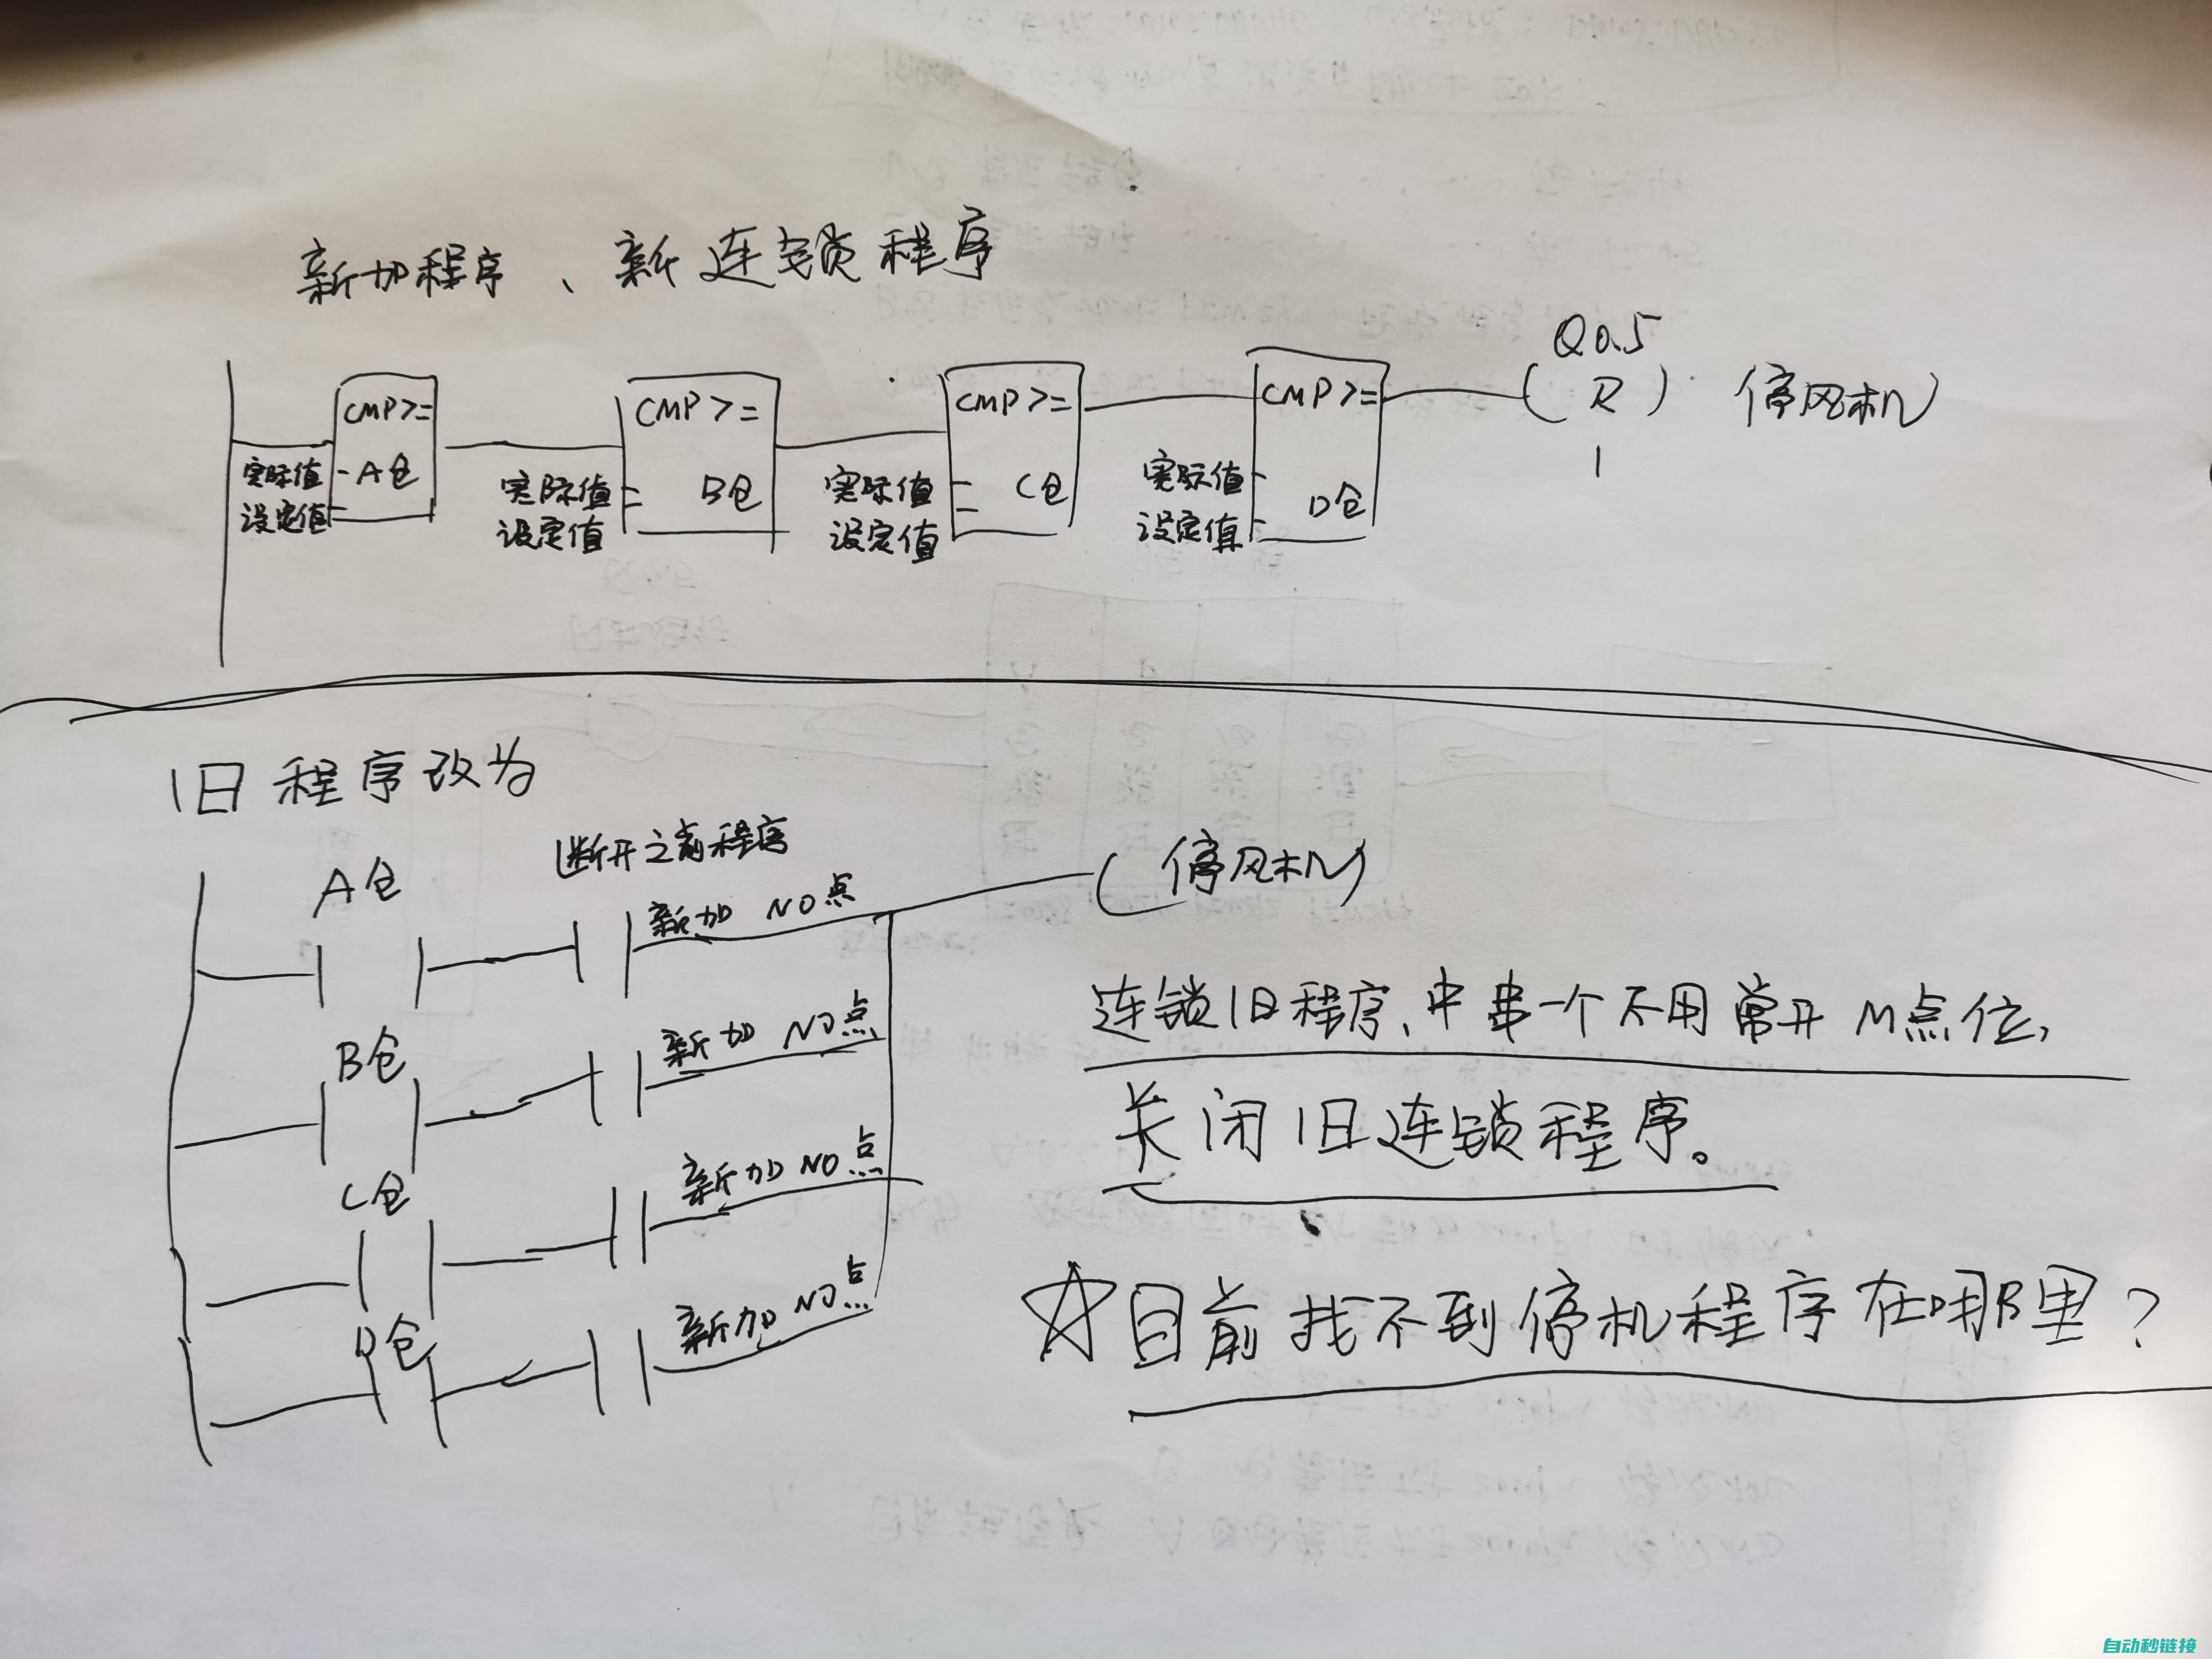 新加程序、新连锁程序
Q0.5
CMP>= CMP>= CMP>= CMP>= ( R ) 停风机
1
实际值 A仓 实际值 B仓 实际值 C仓 实际值 D仓
设定值 设定值 设定值 设定值
旧程序改为
断开之前程序
A仓 新加 NO点 (停风机)
B仓 新加 NO点
C仓 新加 NO点
D仓 新加 NO点
连锁旧程序、中串一个不用常开M点位,
关闭旧连锁程序。
☆目前找不到停机程序在哪里?
自动秒链接